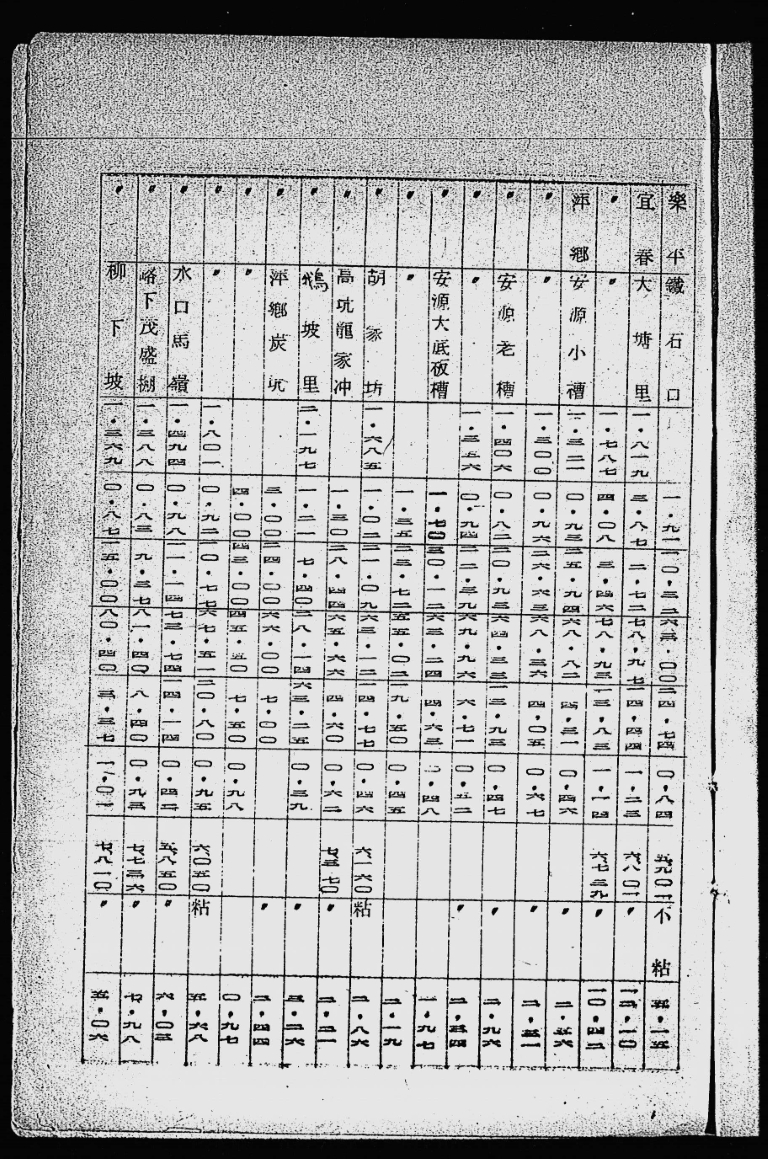 樂平 鐵石口 一・九一 六三・〇〇 二四・七四 〇・八四 五九〇一 不粘 五・一五
宜春 大塘里 一・八一九 三・八七 二・七二 七八・九七 一四・四四 一・二三 六八〇一 〃
〃 一・七八七 四・〇八 三・四六 七八・九三 一三・八三 一・一四 六七三九 〃 一〇・四二
萍鄉 安源小槽 一・三二一 〇・九三 二五・九四 六八・八二 四・三一 〇・四六 〃 二・五六
〃 〃 一・三〇〇 〇・九六 二六・六三 六八・三六 四・〇五 〇・六七 〃
〃 安源老槽 一・四〇六 〇・八二 二〇・九三 六四・三三 一三・九三 〇・四七 〃 二・九六
〃 〃 一・三五六 〇・九四 二二・三九 六九・九六 六・七一 〇・五二 〃
〃 安源大底板槽 一・七〇 三〇・一二 六三・二四 四・六三 〇・四八 一・九七
〃 〃 一・三五 二三・七二 五五・〇二 一九・五〇 〇・四五 二・一九
〃 胡家坊 一・六八五 一・〇二 二一・〇九 六三・一二 一四・七七 〇・四六 六一六〇 粘 二・八六
〃 高坑龍家冲 一・三〇 二八・四四 六五・六六 四・六〇 〇・六二 〃 二・二一
〃 鵝坡里 二・一九七 一・二一 七・四〇 二八・一四 六三・二五 〇・三九 〃 三・二六
〃 萍鄉炭坑 三・〇〇 二四・〇〇 六六・〇〇 七・〇〇 〃 二・四四
〃 〃 四・〇〇 四三・〇〇 四五・五〇 七・五〇 〇・九八 〇・九七
〃 〃 一・八〇一 〇・九二 一〇・七七 六七・五一 二〇・八〇 〇・九五 六〇五〇 粘 五・六八
〃 水口馬嶺 一・四九四 〇・九八 一一・一四 七三・七四 一四・一四 〇・四二 五八五〇 〃 六・〇三
〃 峈下茂盛棚 一・三八八 〇・八三 九・三七 八一・四〇 八・四〇 〇・九三 七七三六 〃 七・九八
〃 柳下坡 一・三六九 〇・八七 一五・〇〇 八〇・四〇 三・三七 一・〇一 七八一〇 〃 五・〇六